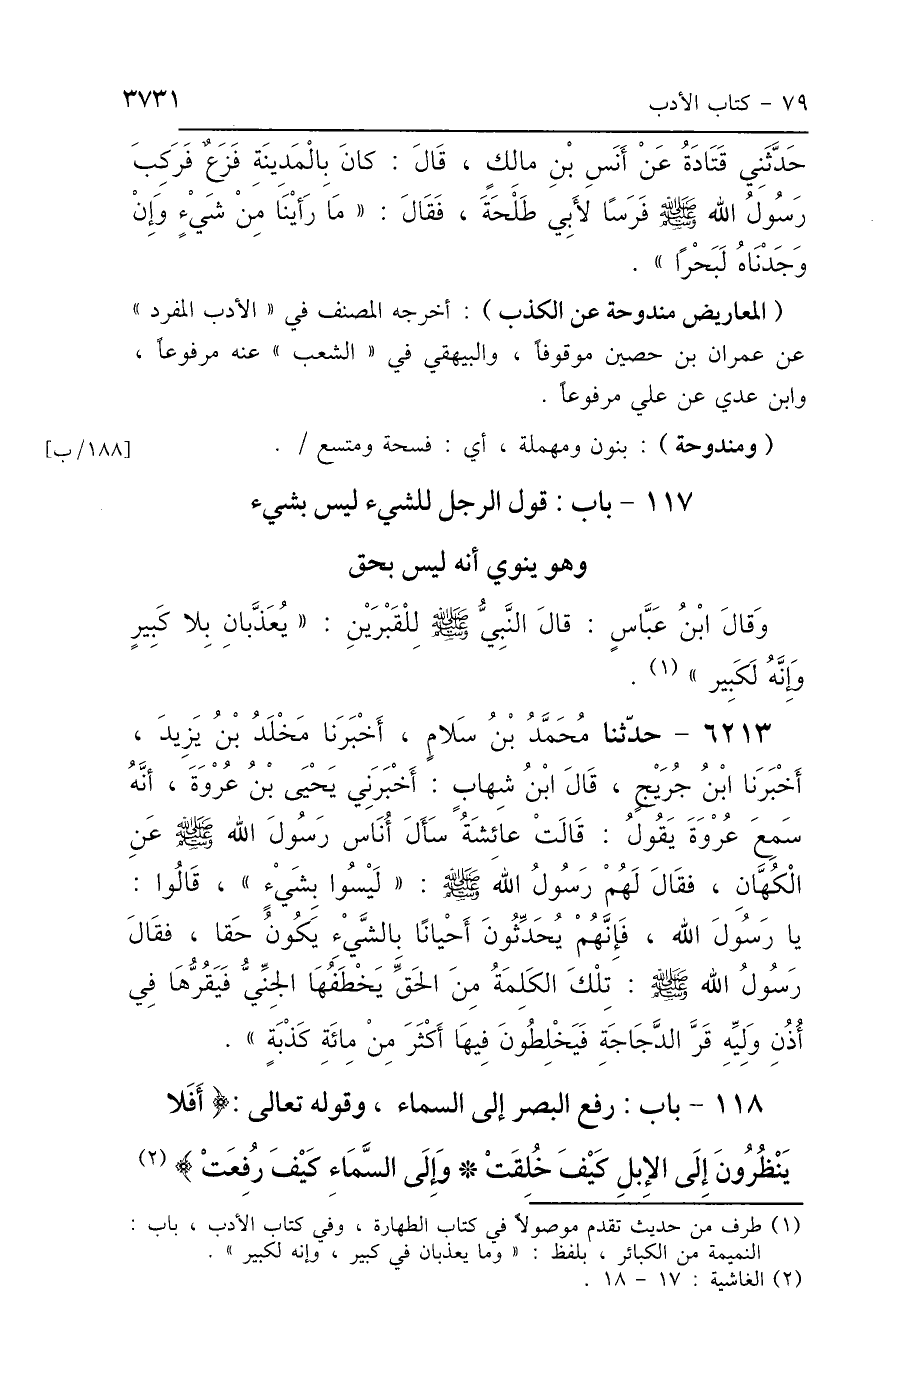 ٧٩ - كتاب الأدب ٣٧٣١
حَدَّثَنِي قَتَادَةُ عَنْ أَنَسِ بْنِ مالِكٍ ، قَالَ : كانَ بِالْمَدِينَةِ فَزَعٌ فَرَكِبَ
رَسُولُ الله ﷺ فَرَسًا لأَبِي طَلْحَةَ ، فَقَالَ : « مَا رَأَيْنَا مِنْ شَيْءٍ وَإِنْ
وَجَدْنَاهُ لَبَحْرًا » .
( المعاريض مندوحة عن الكذب ) : أخرجه المصنف في « الأدب المفرد »
عن عمران بن حصين موقوفاً ، والبيهقي في « الشعب » عنه مرفوعاً ،
وابن عدي عن علي مرفوعاً .
( ومندوحة ) : بنون ومهملة ، أي : فسحة ومتسع / . [١٨٨/ب]
١١٧ - باب : قول الرجل للشيء ليس بشيء
وهو ينوي أنه ليس بحق
وَقالَ ابْنُ عَبَّاسٍ : قالَ النَّبِيُّ ﷺ لِلْقَبْرَيْنِ : « يُعَذَّبانِ بِلا كَبِيرٍ
وَإِنَّهُ لَكَبِير » (١) .
٦٢١٣ - حدّثنا مُحَمَّدُ بْنُ سَلامٍ ، أَخْبَرَنا مَخْلَدُ بْنُ يَزِيدَ ،
أَخْبَرَنا ابْنُ جُرَيْجٍ ، قَالَ ابْنُ شِهابٍ : أَخْبَرَنِي يَحْيَى بْنُ عُرْوَةَ ، أَنَّهُ
سَمِعَ عُرْوَةَ يَقُولُ : قالَتْ عائِشَةُ سَأَلَ أُنَاس رَسُولَ الله ﷺ عَنِ
الْكُهَّانِ ، فَقالَ لَهُمْ رَسُولُ الله ﷺ : « لَيْسُوا بِشَيْءٍ » ، قَالُوا :
يا رَسُولَ الله ، فَإِنَّهُمْ يُحَدِّثُونَ أَحْيانًا بِالشَّيْءِ يَكُونُ حقا ، فقالَ
رَسُولُ الله ﷺ : تِلْكَ الكَلِمَةُ مِنَ الحَقِّ يَخْطَفُهَا الجِنِّيُّ فَيَقُرُّهَا فِي
أُذُنِ وَلِيِّهِ قَرَّ الدَّجَاجَةِ فَيَخْلِطُونَ فِيهَا أَكْثَرَ مِنْ مائَةِ كَذْبَةٍ » .
١١٨ - باب : رفع البصر إلى السماء ، وقوله تعالى :﴿ أَفَلا
يَنْظُرُونَ إِلَى الإِبِلِ كَيْفَ خُلِقَتْ * وَإِلَى السَّمَاءِ كَيْفَ رُفِعَتْ ﴾ (٢)
(١) طرف من حديث تقدم موصولاً في كتاب الطهارة ، وفي كتاب الأدب ، باب :
النميمة من الكبائر ، بلفظ : « وما يعذبان في كبير ، وإنه لكبير » .
(٢) الغاشية : ١٧ - ١٨ .